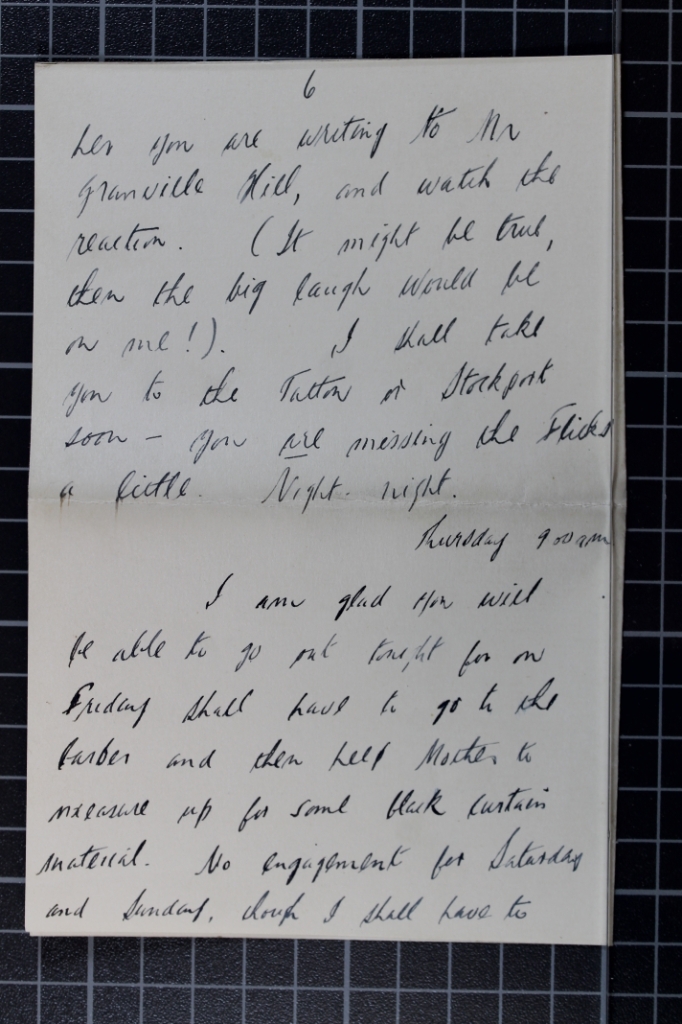 6
her you are writing to Mr
Granville Hill, and watch the
reaction. (It might be true,
then the big laugh would be
on me!). I shall take
you to the Tatton or Stockport
soon - you are missing the Flicks
a little. Night-night.
Thursday 9 00 am
I am glad you will
be able to go out tonight for on
Friday shall have to go to the
barber and then help Mother to
measure up for some black curtain
material. No engagement for Saturday
and Sunday, though I shall have to